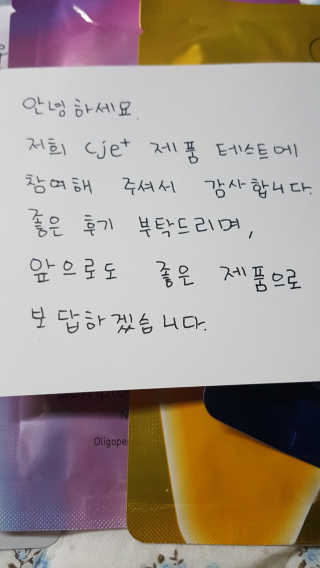 안녕하세요.
저희 cjet 제품 테스트에
참여해 주셔서 감사합니다.
좋은 후기 부탁드리며,
앞으로도 좋은 제품으로
보답하겠습니다.
Oligope